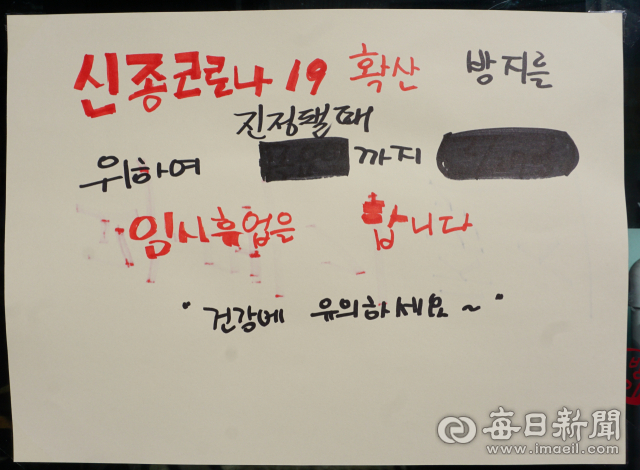 신종코로나 19 확산 방지를
진정됄때
위하여 까지
임시휴업을 합니다
"건강에 유의하세요~"
每日新聞
www.imaeil.com